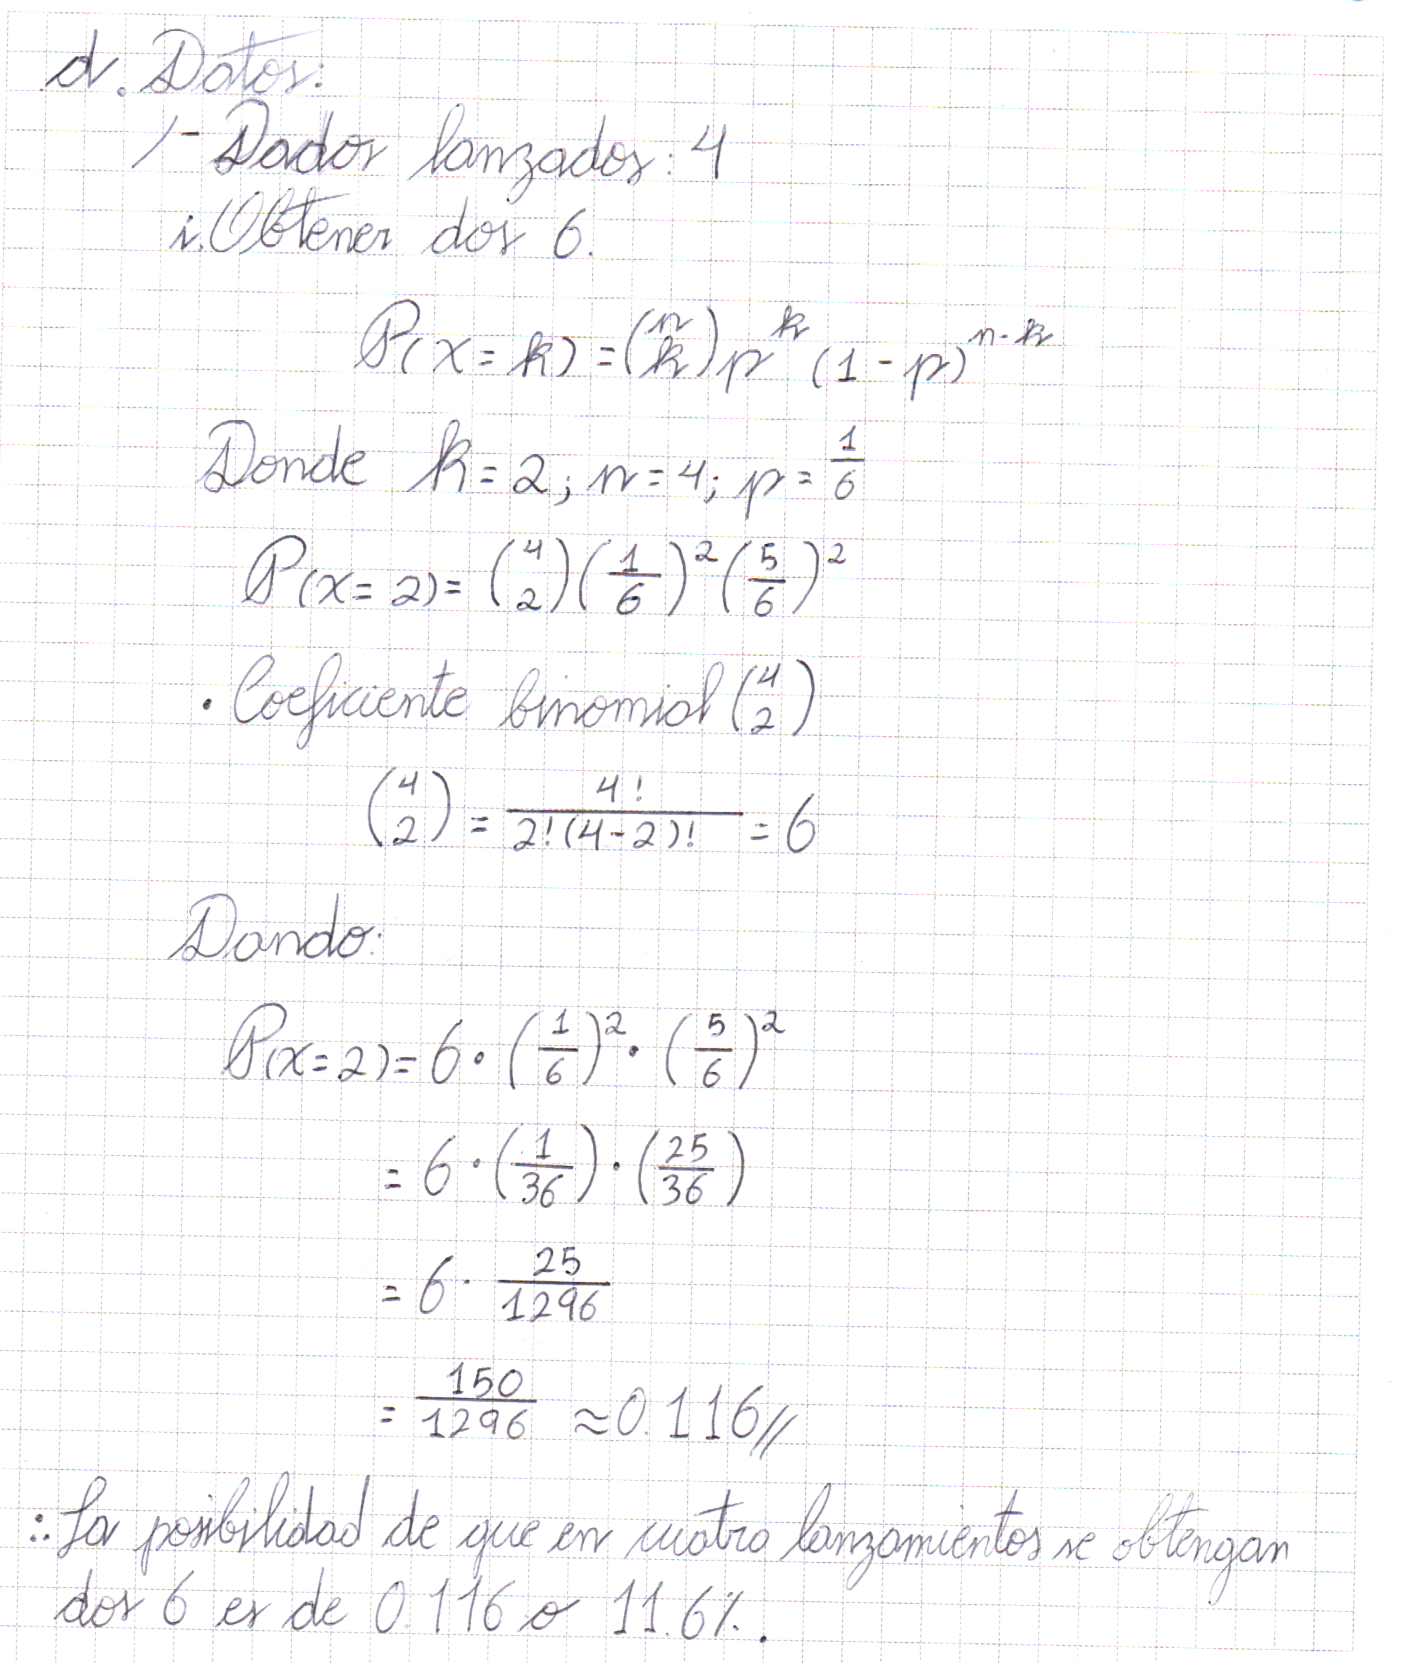 d. Datos:
- Dados lanzados: 4
i. Obtener dos 6.
P(x = k) = (n k) p^k (1 - p)^(n-k)
Donde k = 2; n = 4; p = 1/6
P(x = 2) = (4 2)(1/6)^2 (5/6)^2
• Coeficiente binomial (4 2)
(4 2) = 4! / 2!(4-2)! = 6
Dando:
P(x = 2) = 6 • (1/6)^2 • (5/6)^2
= 6 • (1/36) • (25/36)
= 6 • 25/1296
= 150/1296 ≈ 0.116//
∴ La posibilidad de que en cuatro lanzamientos se obtengan
dos 6 es de 0.116 o 11.6%.